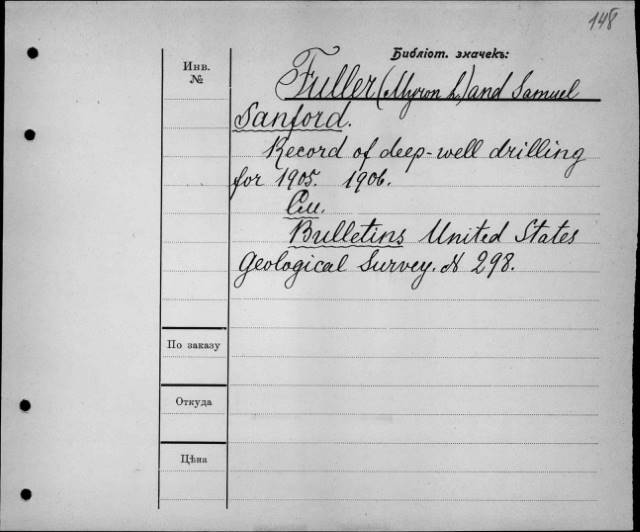 148
Библіот. значекъ:
Инв.
№
Fuller (Myron L.) and Samuel
Sanford.
Record of deep-well drilling
for 1905. 1906.
См.
Bulletins United States
Geological Survey. № 298.
По заказу
Откуда
Цѣна